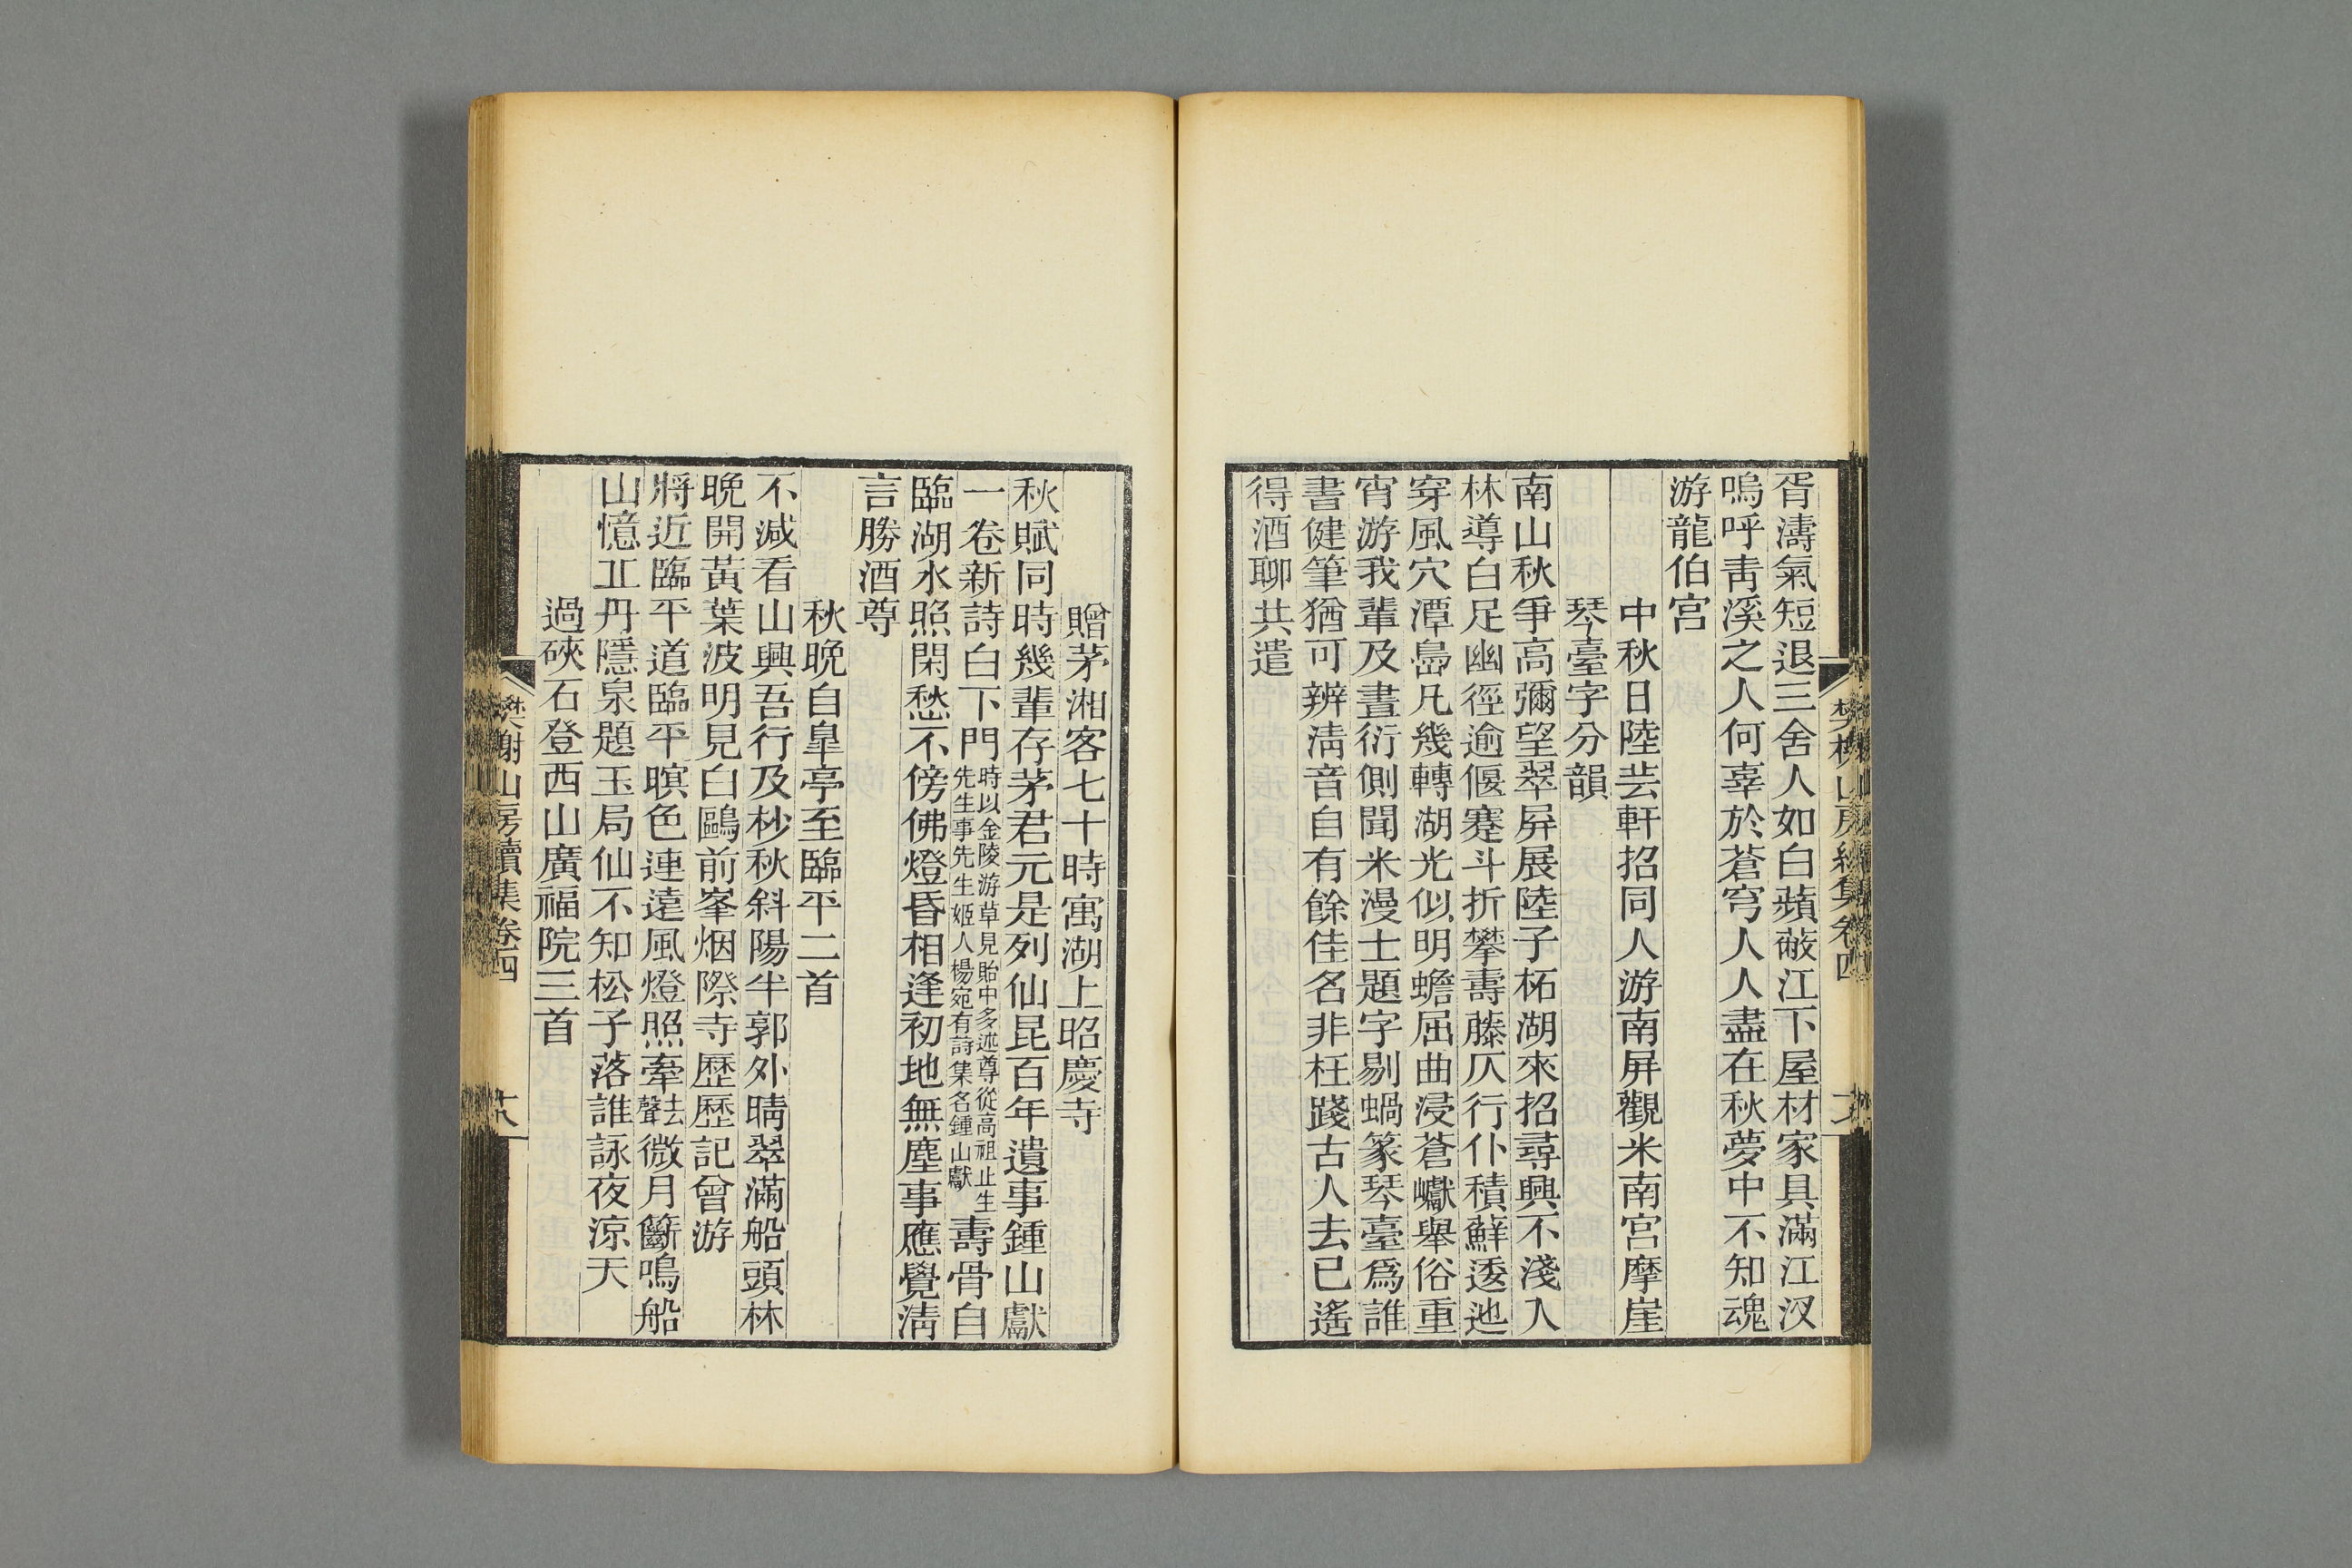 胥濤氣短退三舍人如白蘋蔽江下屋材家具滿江汊
嗚呼靑溪之人何辜於蒼穹人人盡在秋夢中不知魂
游龍伯宮
中秋日陸芸軒招同人游南屏觀米南宮摩崖
琴臺字分韻
南山秋爭高彌望翠屛展陸子柘湖來招尋興不淺入
林導白足幽徑逾偃蹇斗折攀壽藤仄行仆積蘚逶迆
穿風穴潭島凡幾轉湖光似明蟾屈曲浸蒼巘舉俗重
宵游我輩及晝衍側聞米漫士題字剔蝸篆琴臺爲誰
書健筆猶可辨淸音自有餘佳名非枉踐古人去已遙
得酒聊共遣
樊榭山房續集卷四
贈茅湘客七十時寓湖上昭慶寺
秋賦同時幾輩存茅君元是列仙昆百年遺事鍾山獻
一卷新詩白下門時以金陵游草見貽中多述尊從高祖止生先生事先生姬人楊宛有詩集名鍾山獻壽骨自
臨湖水照閑愁不傍佛燈昏相逢初地無塵事應覺淸
言勝酒尊
秋晚自皐亭至臨平二首
不減看山興吾行及杪秋斜陽半郭外晴翠滿船頭林
晚開黃葉波明見白鷗前峯烟際寺歷歷記曾游
將近臨平道臨平暝色連遠風燈照牽去聲微月籪鳴船
山憶丠丹隱泉題玉局仙不知松子落誰詠夜涼天
過硤石登西山廣福院三首
樊榭山房續集卷四
十八